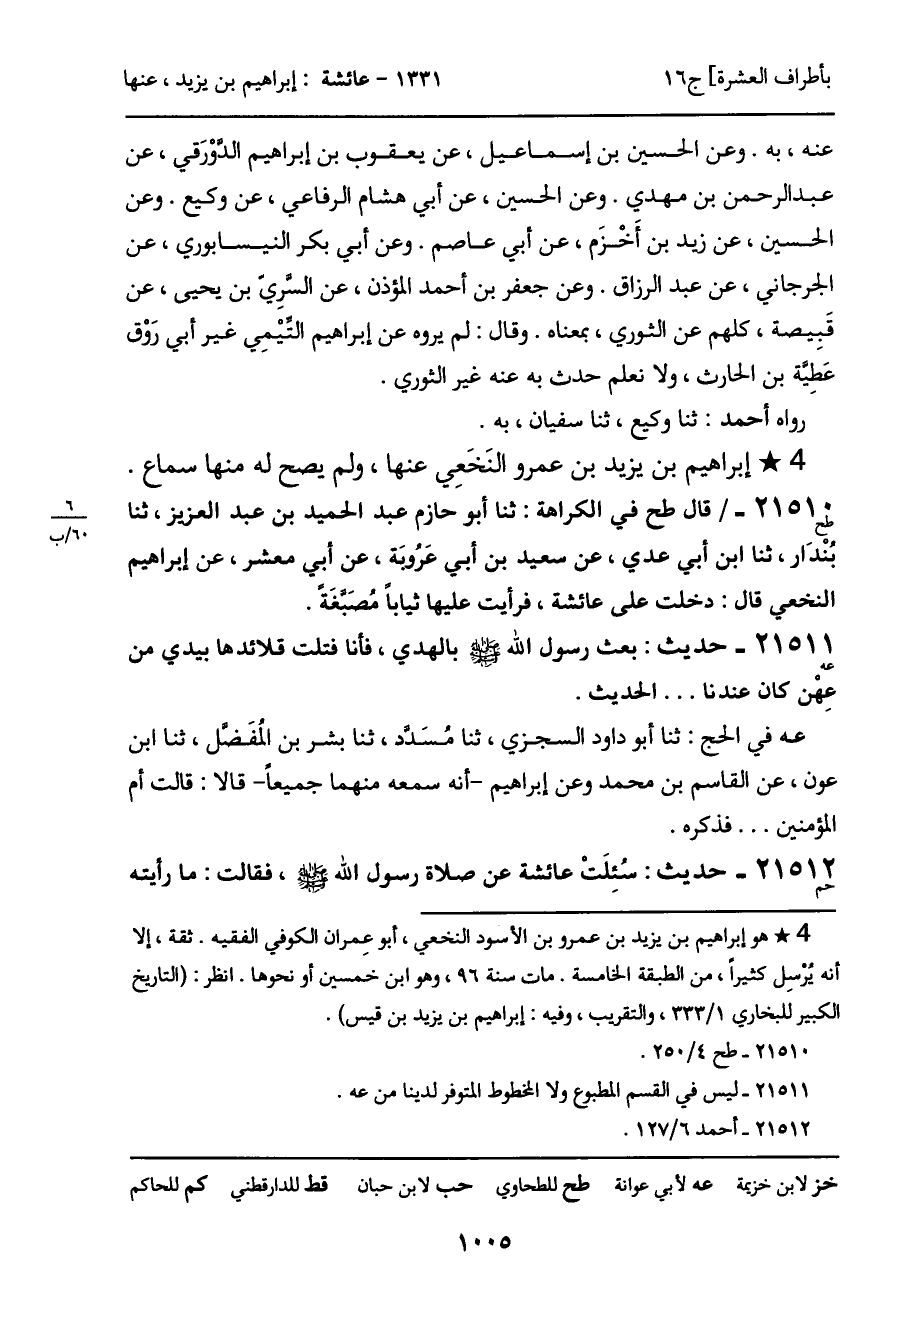 بأطراف العشرة] ج١٦ ١٣٣١ - عائشة : إبراهيم بن يزيد ، عنها
عنه ، به . وعن الحسين بن إسماعيل ، عن يعقوب بن إبراهيم الدَّوْرَقي ، عن
عبدالرحمن بن مهدي . وعن الحسين ، عن أبي هشام الرفاعي ، عن وكيع . وعن
الحسين ، عن زيد بن أَخْزَم ، عن أبي عاصم . وعن أبي بكر النيسابوري ، عن
الجرجاني ، عن عبد الرزاق . وعن جعفر بن أحمد المؤذن ، عن السَّرِيّ بن يحيى ، عن
قَبِيصة ، كلهم عن الثوري ، بمعناه . وقال : لم يروه عن إبراهيم التَّيْمِي غير أبي رَوْق
عَطِيَّة بن الحارث ، ولا نعلم حدث به عنه غير الثوري .
رواه أحمد : ثنا وكيع ، ثنا سفيان ، به .
4 ★ إبراهيم بن يزيد بن عمرو النَخَعِي عنها ، ولم يصح له منها سماع .
٢١٥١٠ ـ / قال طح في الكراهة : ثنا أبو حازم عبد الحميد بن عبد العزيز ، ثنا
طح
٦
٦٠/ب
بُنْدَار ، ثنا ابن أبي عدي ، عن سعيد بن أبي عَرُوبَة ، عن أبي معشر ، عن إبراهيم
النخعي قال : دخلت على عائشة ، فرأيت عليها ثياباً مُصَبَّغَةً .
٢١٥١١ ـ حديث : بعث رسول الله ﷺ بالهدي ، فأنا فتلت قلائدها بيدي من
عه
عِهْن كان عندنا ... الحديث .
عه في الحج : ثنا أبو داود السجزي ، ثنا مُسَدَّد ، ثنا بشر بن المُفَضَّل ، ثنا ابن
عون ، عن القاسم بن محمد وعن إبراهيم -أنه سمعه منهما جميعاً- قالا : قالت أم
المؤمنين ... فذكره .
٢١٥١٢ ـ حديث : سُئِلَتْ عائشة عن صلاة رسول الله ﷺ ، فقالت : ما رأيته
حم
4 ★ هو إبراهيم بن يزيد بن عمرو بن الأسود النخعي ، أبو عِمران الكوفي الفقيه . ثقة ، إلا
أنه يُرْسِل كثيراً ، من الطبقة الخامسة . مات سنة ٩٦ ، وهو ابن خمسين أو نحوها . انظر : (التاريخ
الكبير للبخاري ٣٣٣/١ ، والتقريب ، وفيه : إبراهيم بن يزيد بن قيس) .
٢١٥١٠ ـ طح ٢٥٠/٤ .
٢١٥١١ ـ ليس في القسم المطبوع ولا المخطوط المتوفر لدينا من عه .
٢١٥١٢ ـ أحمد ١٢٧/٦ .
خز لابن خزيمة عه لأبي عوانة طح للطحاوي حب لابن حبان قط للدارقطني كم للحاكم
١٠٠٥